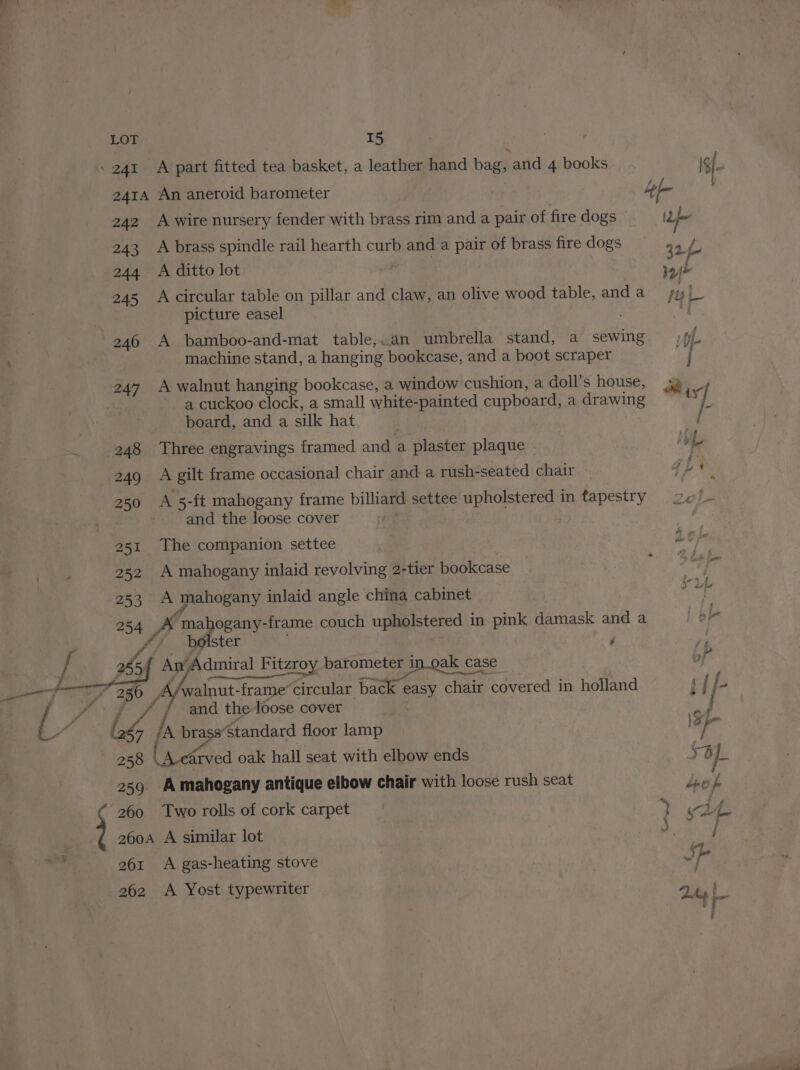 LOT 15
241 A part fitted tea basket, a leather hand bag, and 4 books 18/-
241A An aneroid barometer 4/-
242 A wire nursery fender with brass rim and a pair of fire dogs 12/-
243 A brass spindle rail hearth curb and a pair of brass fire dogs 32/-
244 A ditto lot 32/-
245 A circular table on pillar and claw, an olive wood table, and a
picture easel
246 A bamboo-and-mat table, an umbrella stand, a sewing
machine stand, a hanging bookcase, and a boot scraper
247 A walnut hanging bookcase, a window cushion, a doll's house,
a cuckoo clock, a small white-painted cupboard, a drawing
board, and a silk hat
248 Three engravings framed and a plaster plaque
249 A gilt frame occasional chair and a rush-seated chair
250 A 5-ft mahogany frame billiard settee upholstered in tapestry 20/-
and the loose cover
251 The companion settee 20/-
252 A mahogany inlaid revolving 2-tier bookcase
253 A mahogany inlaid angle china cabinet 52/-
254 A mahogany-frame couch upholstered in pink damask and a
bolster
255 An Admiral Fitzroy barometer in oak case
256 A walnut-frame circular back easy chair covered in holland 11/-
and the loose cover
257 A brass standard floor lamp 18/-
258 A carved oak hall seat with elbow ends 58/-
259 A mahogany antique elbow chair with loose rush seat 40/-
260 Two rolls of cork carpet 52/-
260A A similar lot
261 A gas-heating stove 5/-
262 A Yost typewriter 24/-